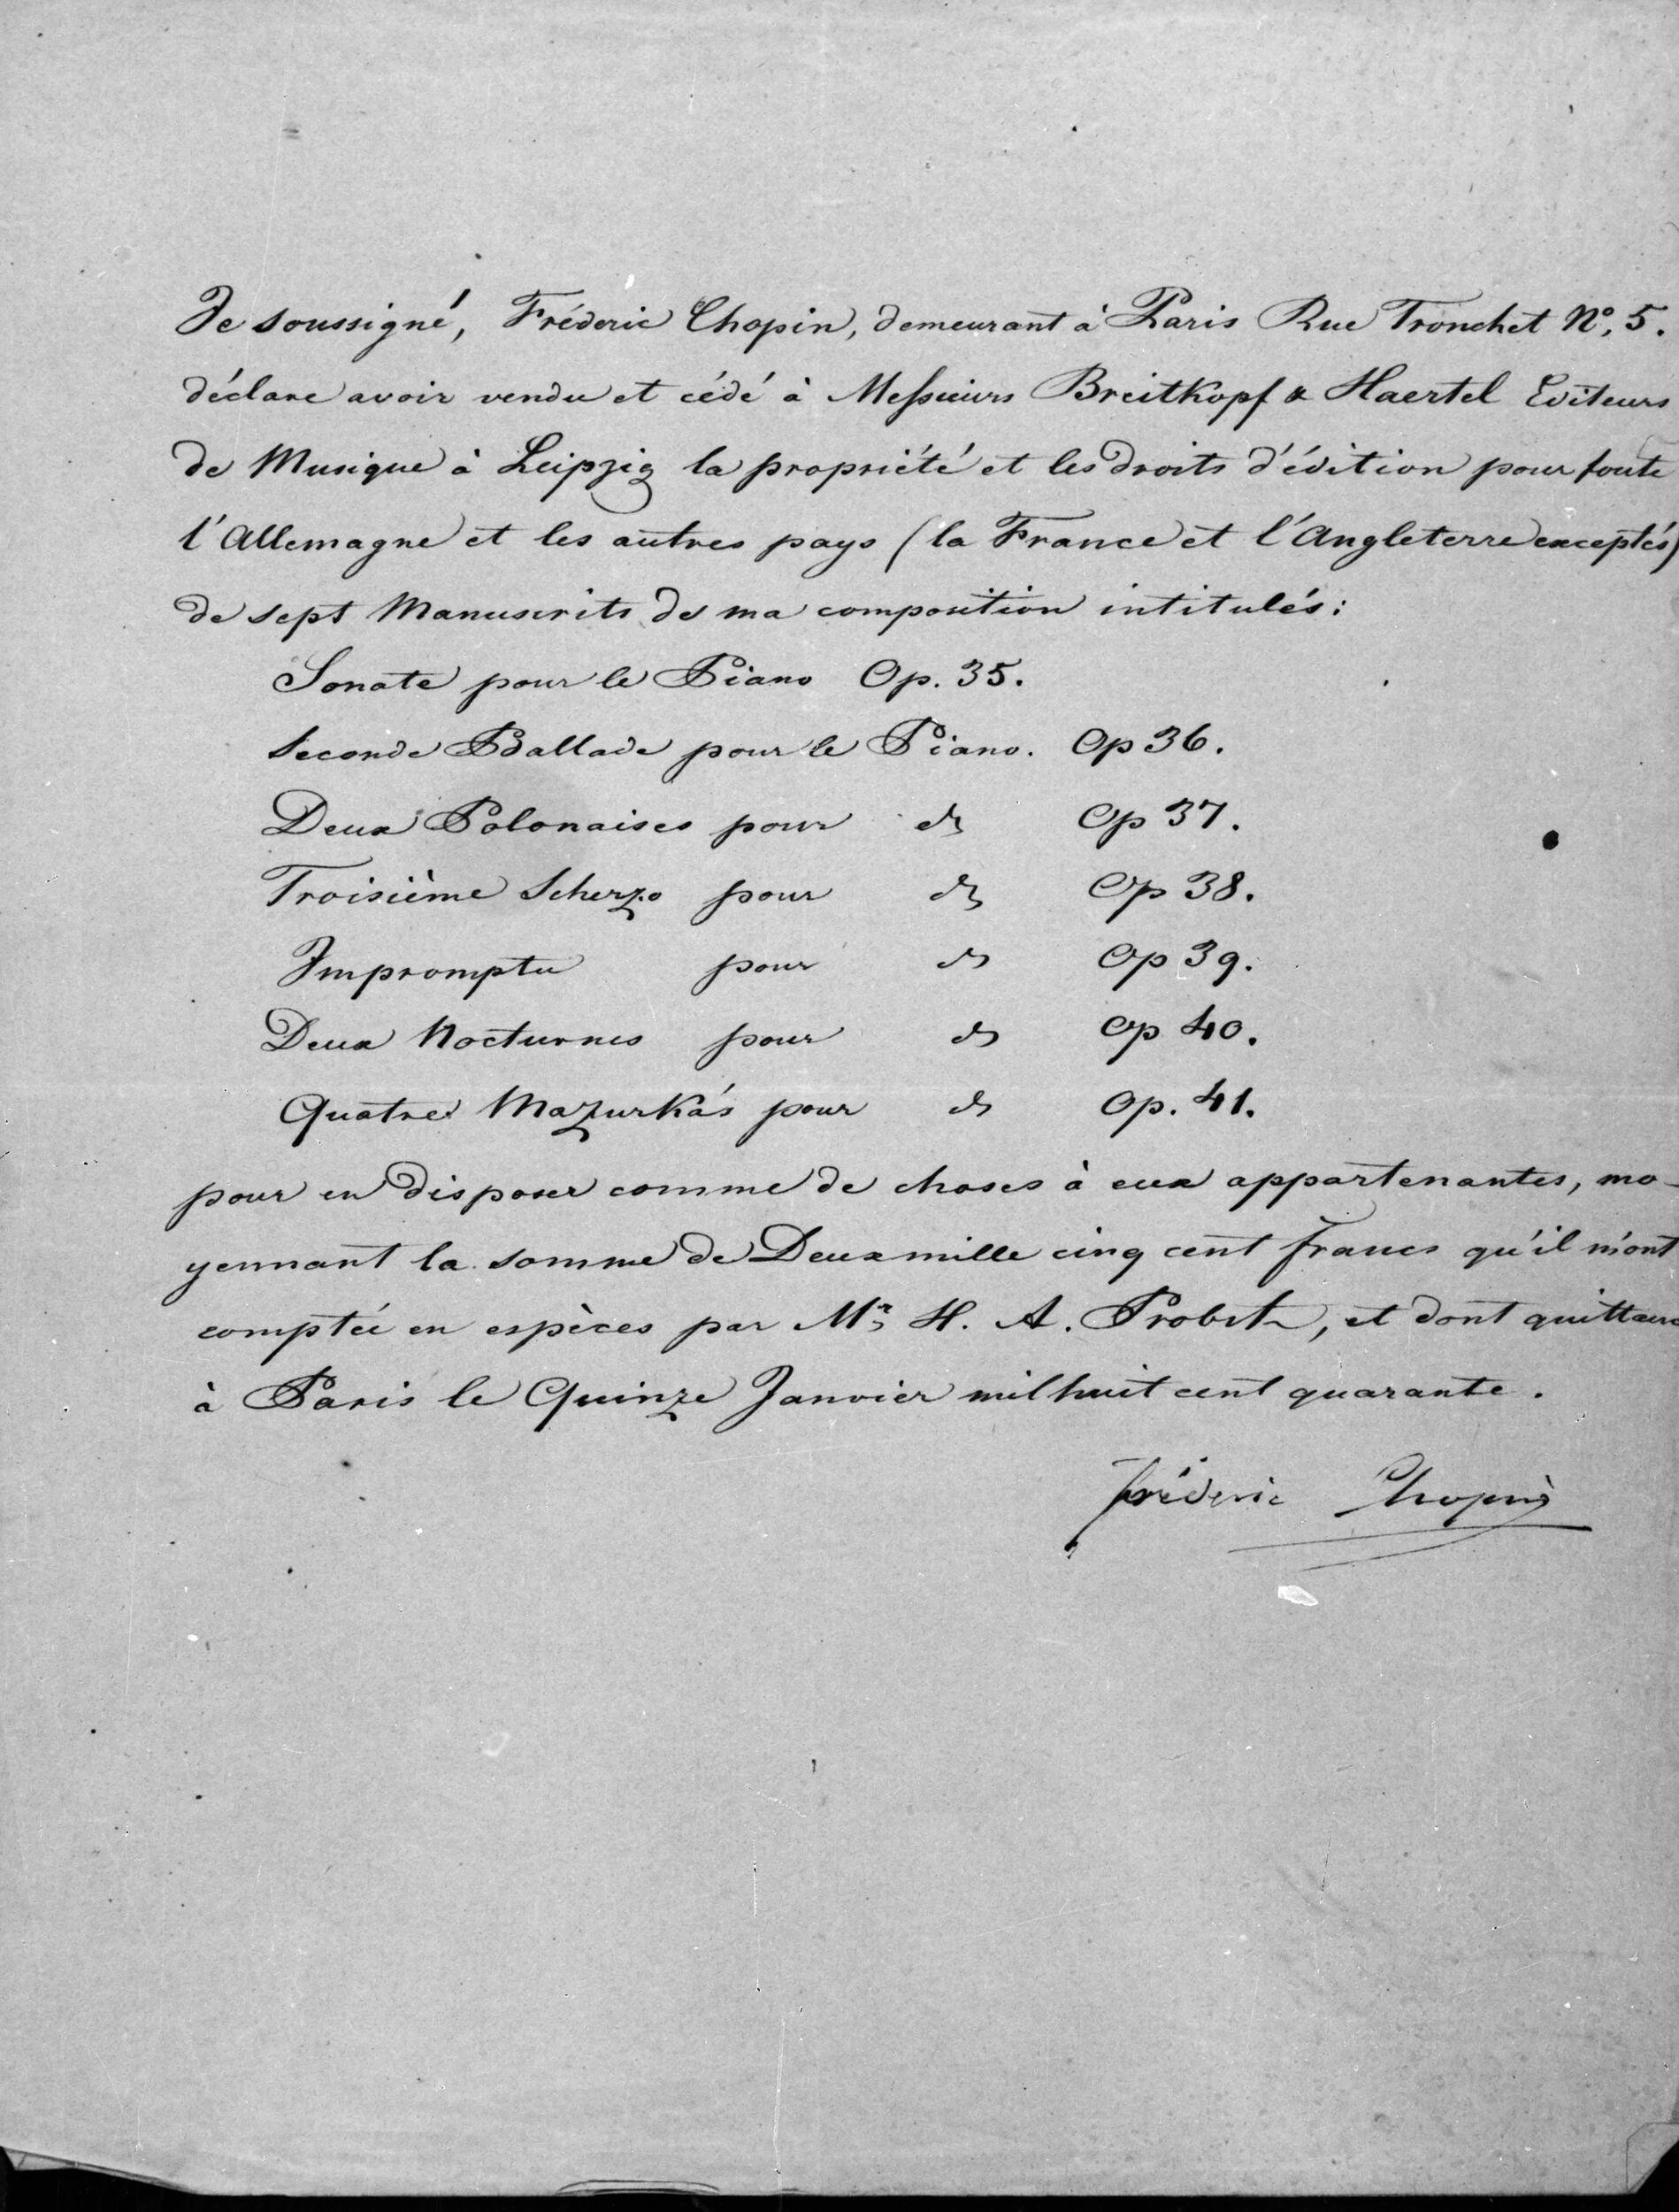 Je soussigné, Fréderic Chopin, demeurant à Paris Rue Tronchet No. 5.
déclare avoir vendu et cédé à Messieurs Breitkopf & Haertel Editeurs
de Musique à Leipzig la propriété et les droits d'édition pour toute
l'Allemagne et les autres pays (la France et l'Angleterre exceptés)
de sept Manuscrits de ma composition intitulés:
Sonate pour le Piano Op. 35.
Seconde Ballade pour le Piano. Op 36.
Deux Polonaises pour do Op 37.
Troisième Scherzo pour do Op 38.
Impromptu pour do Op 39.
Deux Nocturnes pour do Op 40.
Quatre Mazurka's pour do Op. 41.
pour en disposer comme de choses à eux appartenantes, mo-
yennant la somme de Deux mille cinq cent francs qu'il m'ont
comptée en espèces par Mr. H. A. Probst, et dont quittance
à Paris le Quinze Janvier mil huit cent quarante.
Fréderic Chopin